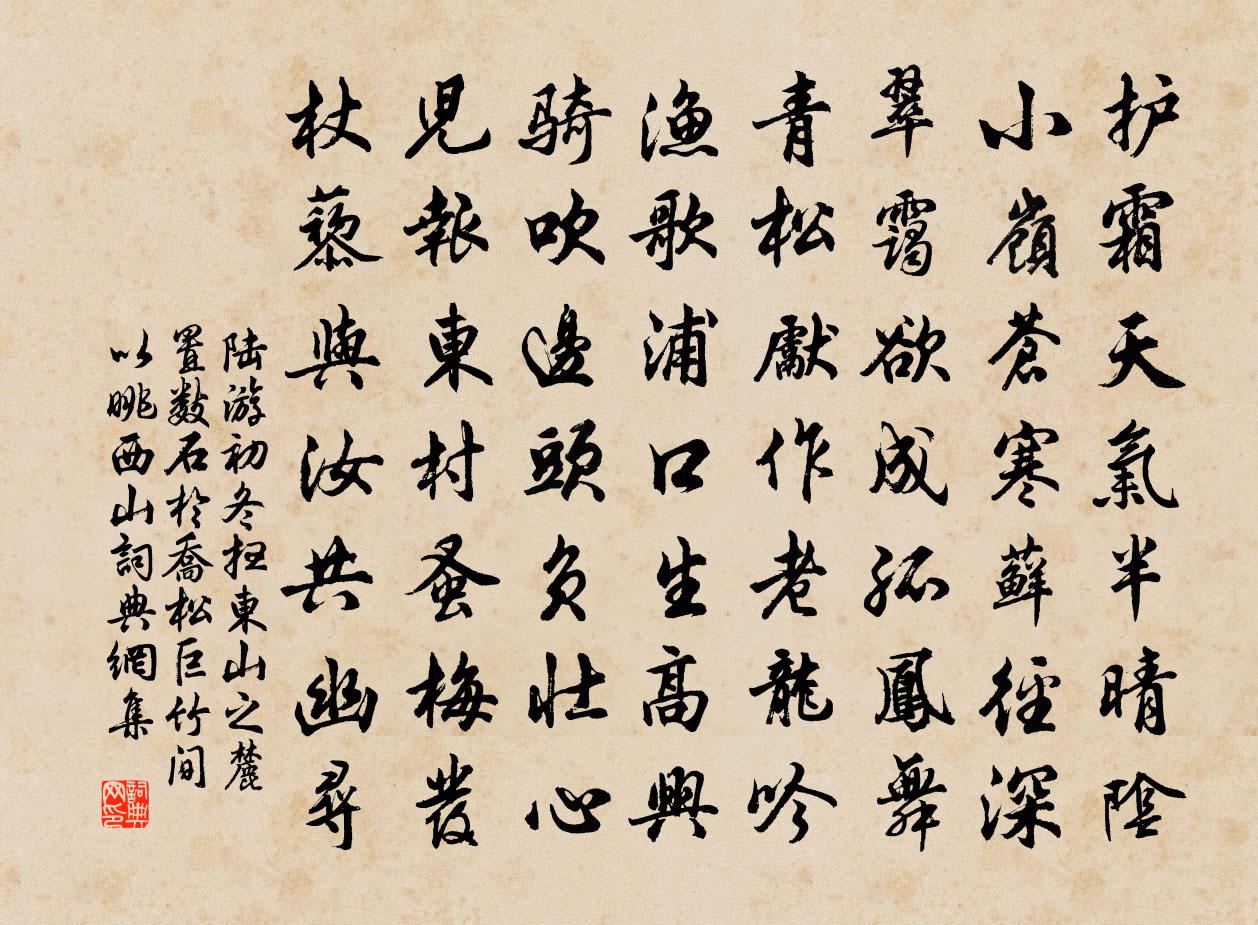 护霜天氣半晴陰
小嶺蒼寒蘚徑深
翠靄欲成孤鳳舞
青松獻作老龍吟
漁歌浦口生高興
騎吹邊頭負壯心
児報東村蚤梅發
杖藜與汝共幽尋
陆游初冬抠東山之麓
置数石於喬松巨竹间
以眺西山詞典網集
詞典
网印